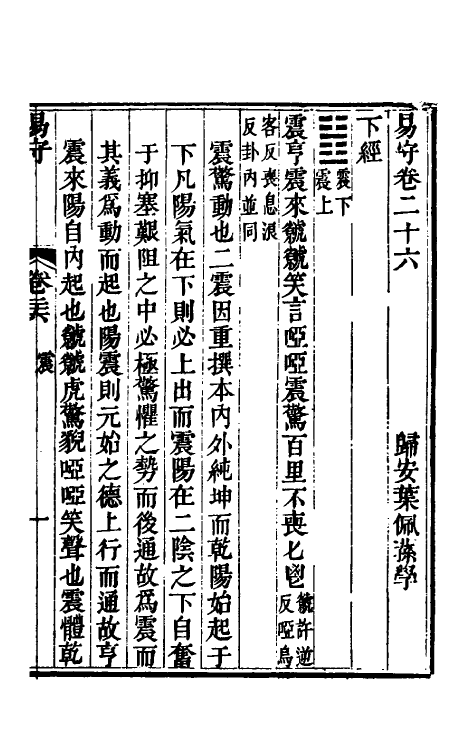 易守卷二十六
歸安葉佩蓀學
下經
震下
震上
震亨震來虩虩笑言啞啞震驚百里不喪匕鬯虩許逆反啞烏
客反喪息浪
反卦內並同
震驚動也二震因重撰本內外純坤而乾陽始起于
下凡陽氣在下則必上出而震陽在二陰之下自奮
于抑塞艱阻之中必極驚懼之勢而後通故爲震而
其義爲動而起也陽震則元始之德上行而通故亨
震來陽自內起也虩虩虎驚貌啞啞笑聲也震體乾
易守
卷二十六
震
一